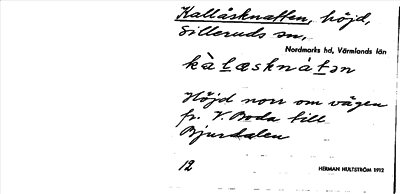 Kallåsknatten, höjd,
Silleruds sn,
Nordmarks hd, Värmlands län
kàlæsknátən
Höjd norr om vägen
fr. V. Boda till
Bjurdalen
12
HERMAN HULTSTRÖM 1912